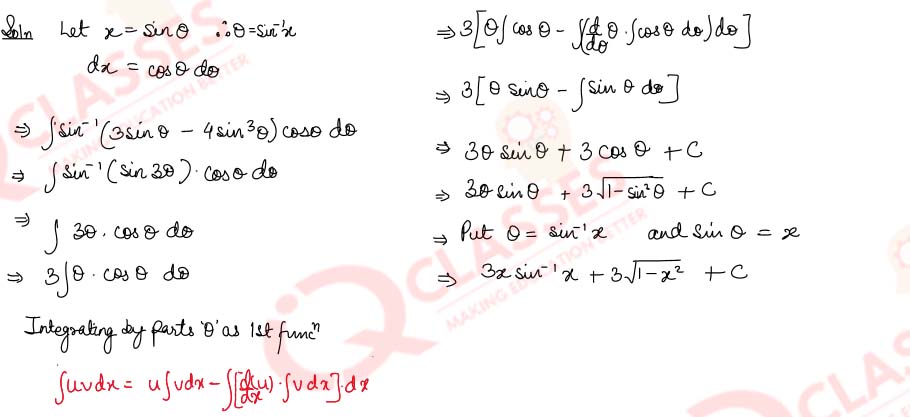 Soln Let x = sinθ ∴θ=sin⁻¹x
dx = cosθ dθ
⇒ ∫sin⁻¹(3sinθ − 4sin³θ) cosθ dθ
⇒ ∫sin⁻¹(sin3θ)·cosθ dθ
⇒ ∫ 3θ·cosθ dθ
⇒ 3∫θ·cosθ dθ
Integrating by parts 'θ' as 1st funcⁿ
∫uvdx = u∫vdx−∫[d/dx(u)·∫vdx]·dx
⇒ 3[θ∫cosθ − ∫(d/dθ θ·∫cosθ dθ)dθ]
⇒ 3[θ sinθ − ∫sinθ dθ]
⇒ 3θ sinθ + 3cosθ + C
⇒ 3θ sinθ + 3√(1−sin²θ) + C
⇒ Put θ = sin⁻¹x and sinθ = x
⇒ 3x sin⁻¹x + 3√(1−x²) + C
CLASSES
MAKING EDUCATION BETTER
CLASSES
MAKING EDUCATION BETTER
CLASSES